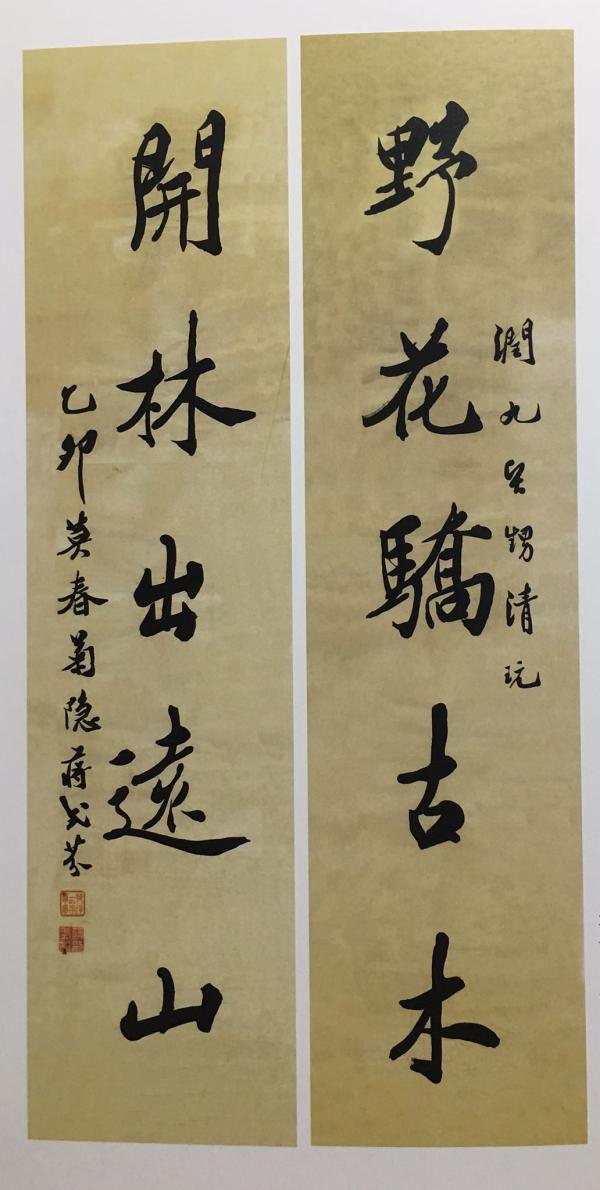 野花驕古木
潤九賢甥清玩
開林出遠山
乙卯莫春菊隐蔣式芬